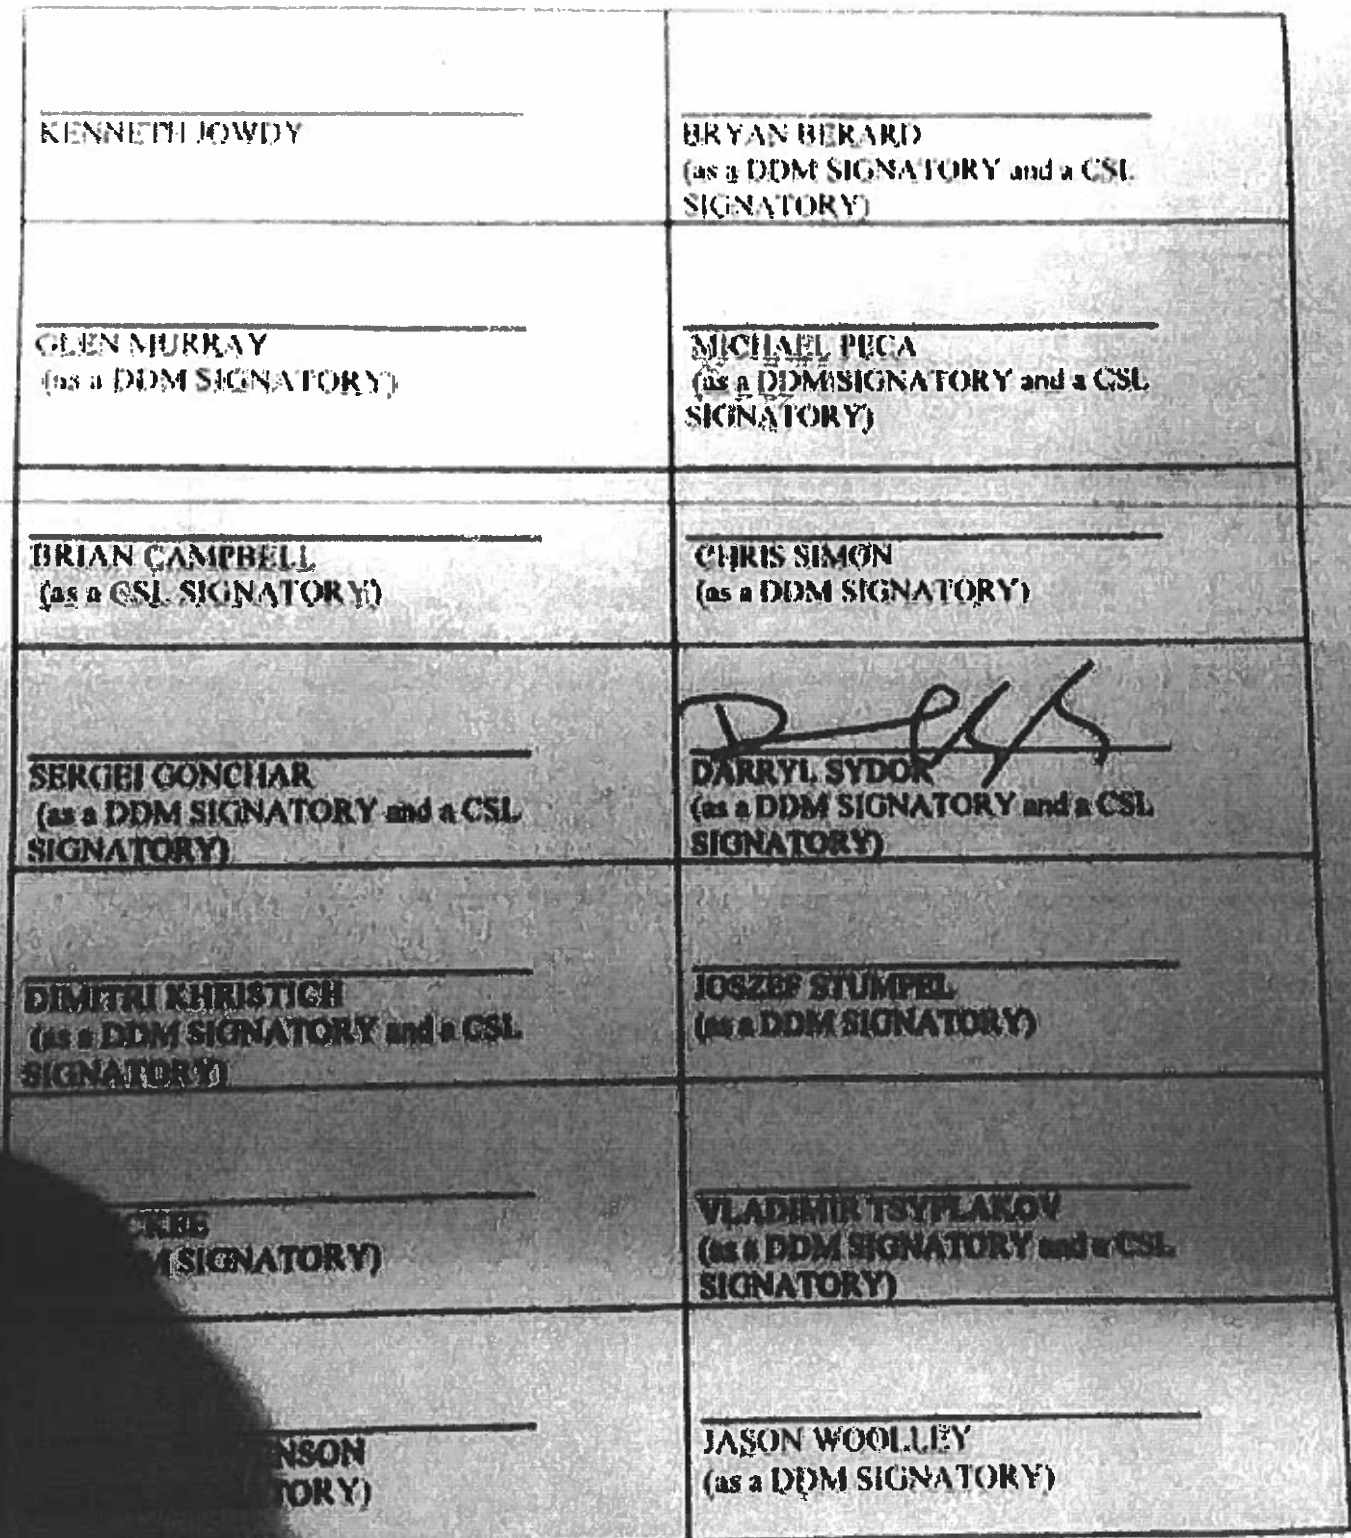 KENNETH JOWDY
BRYAN BERARD
(as a DDM SIGNATORY and a CSL
SIGNATORY)
GLEN MURRAY
(as a DDM SIGNATORY)
MICHAEL PECA
(as a DDM SIGNATORY and a CSL
SIGNATORY)
BRIAN CAMPBELL
(as a CSL SIGNATORY)
CHRIS SIMON
(as a DDM SIGNATORY)
SERGEI GONCHAR
(as a DDM SIGNATORY and a CSL
SIGNATORY)
DARRYL SYDOR
(as a DDM SIGNATORY and a CSL
SIGNATORY)
DIMITRI KHRISTICH
(as a DDM SIGNATORY and a CSL
SIGNATORY)
JOSZEF STUMPEL
(as a DDM SIGNATORY)
SIGNATORY)
VLADIMIR TSYPLAKOV
(as a DDM SIGNATORY and a CSL
SIGNATORY)
NSON
TORY)
JASON WOOLLEY
(as a DDM SIGNATORY)